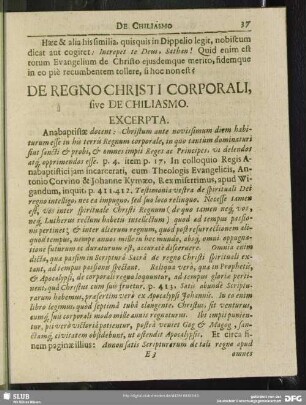 DE CHILIASMO 37
Hæc & alia his similia, quisquis in Dippelio legit, nobiscum
dicat aut cogitet: Increpet te Deus, Sathan! Quid enim est
totum Evangelium de Christo ejusdemque merito, fidemque
in eo piè recumbentem tollere, si hoc non est?
DE REGNO CHRISTI CORPORALI,
sive DE CHILIASMO.
EXCERPTA.
Anabaptistæ docent: Christum ante novissimum diem habi-
turum esse in his terris Regnum corporale, in quo tantum dominaturi
sint sancti & probi, & omnes impii Reges ac Principes, vi delendos
atq; opprimendos esse. p. 4. item p. 17. In colloquio Regis A-
nabaptistici jam incarcerati, cum Theologis Evangelicis, An-
tonio Corvino & Johanne Kymæo, Rex misertimus, apud Wi-
gandum, inquit p. 411. 412. Testimonia vestra de spirituali Dei
regno intellego, nec ea impugno, sed suo loco relinquo. Necesse tamen
est, vos inter spirituale Christi Regnum (de quo tamen neq; vos,
neq; Lutherus rectum habetis intellectum) quod ad tempus passio-
nis pertinet; & inter alterum regnum, quod post resurrectionem ali-
quod tempus, nempe annos mille in hoc mundo, absq; omni oppugna-
tione futurum ac duraturum est, accuratè discernere. Omnia enim
dicta, quæ passim in Scriptura Sacra de regno Christi spirituali ex-
tant, ad tempus passionis spectant. Reliqua verò, quæ in Prophetis,
& Apocalypsi, de corporali regno loquuntur, ad tempus gloriæ perti-
nent, quâ Christus cum suis fruetur, p. 413. Satis abunde Scriptu-
rarum habemus, præsertim verò ex Apocalypsi Johannis. In eo enim
libro legimus, quod septima tuba clangente, Christus sit venturus,
eumq; sui corporali modo mille annos regnaturum. Ibi impii punien-
tur, pii verò victoriâ potientur, posteà veniet Gog & Magog, san-
ctamq; civitatem obsidebunt, ut ostendet Apocalypsis. Et circa fi-
nem paginæ illius: Annon satis Scripturarum de tali regno apud
E 3 omnes